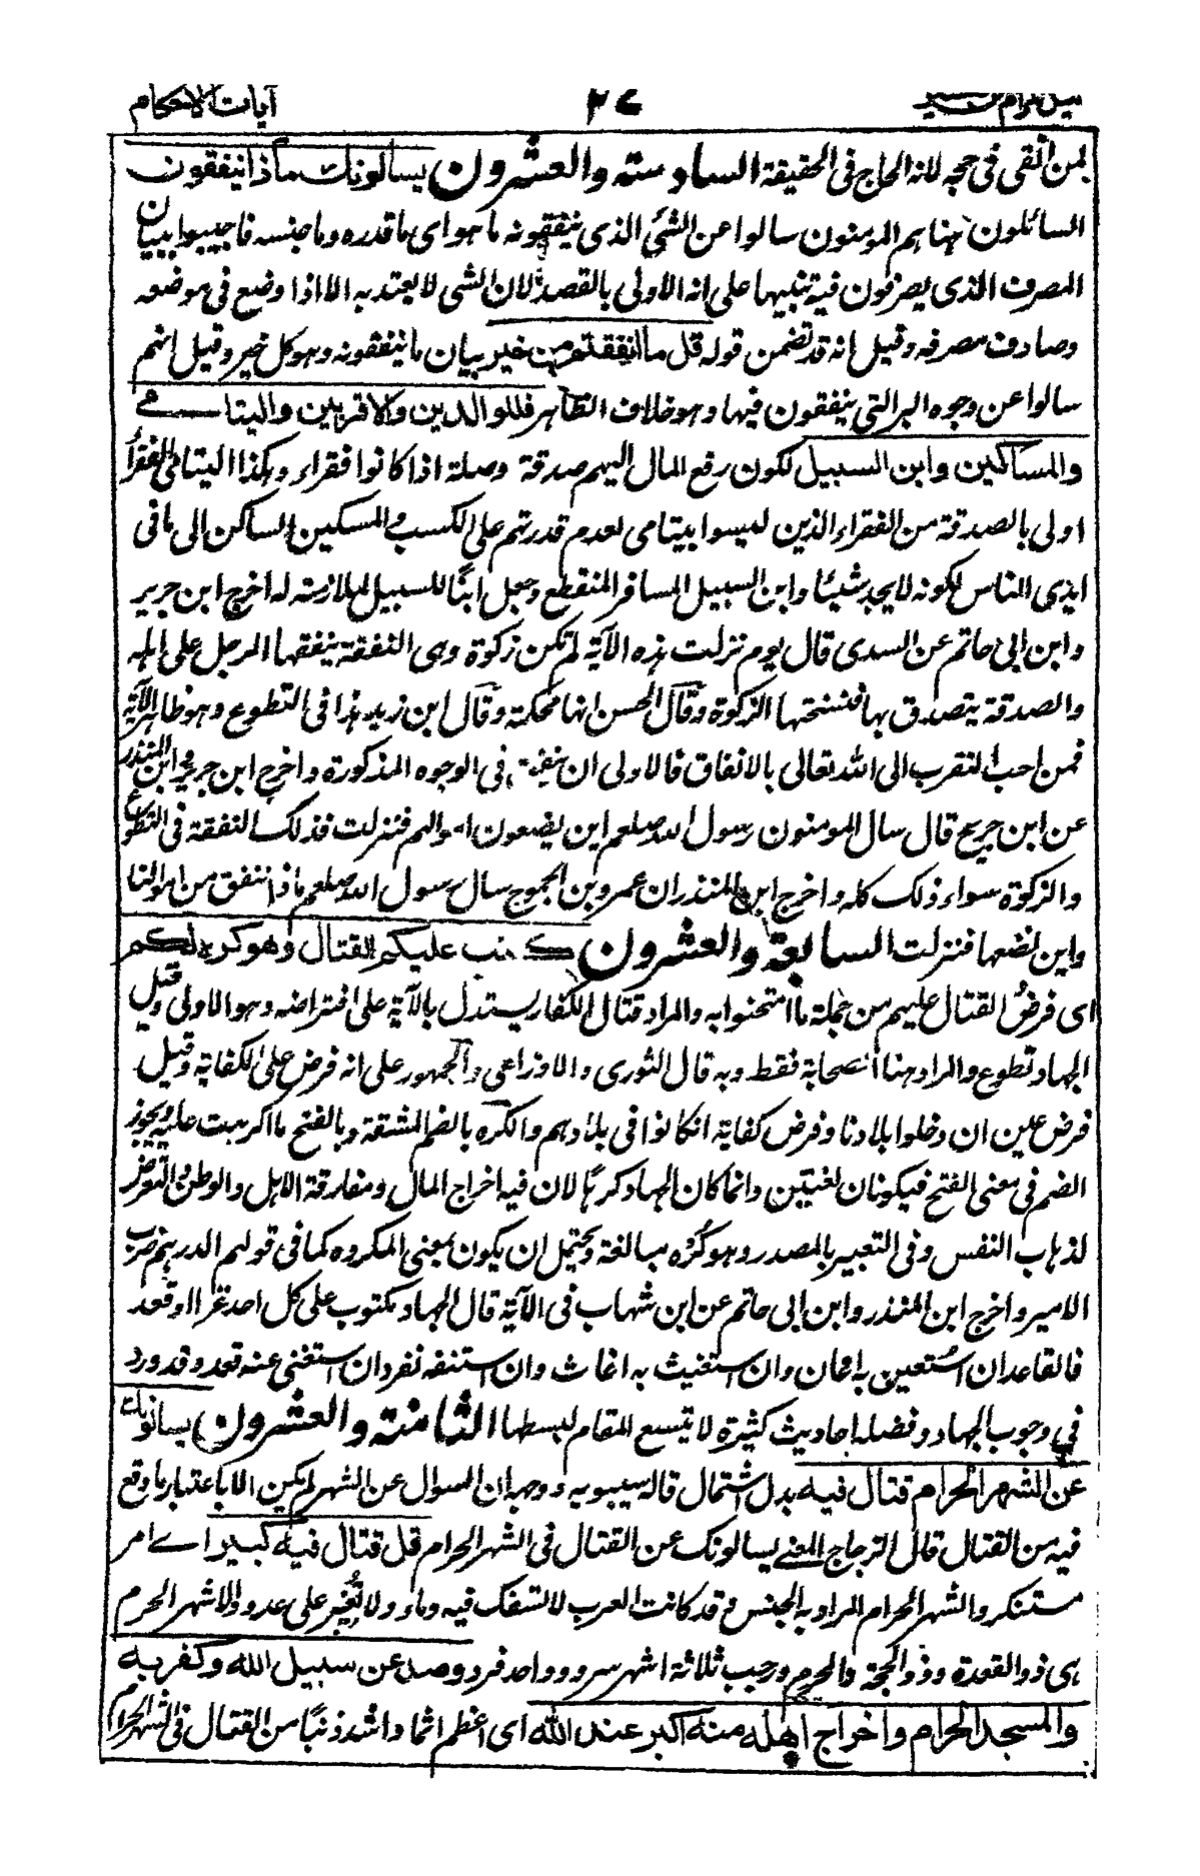 نيل المرام من تفسير ٣٧ آيات الاحكام
لمن اتقى فى حجه لانه الحاج فى الحقيقة السادسته والعشرون يسالونك ماذا ينفقون
السائلون ههنا هم المومنون سالوا عن الشئ الذى ينفقونه ما هو اى ما قدره وما جنسه فاجيبوا ببيان
المصرف الذى يصرفون فيه تنبيها على انه الاولى بالقصد لان الشى لا يعتد به الا اذا وضع فى موضعه
وصادف مصرفه وقيل انه قد تضمن قوله قل ما انفقتم من خير بيان ما ينفقونه وهو كل خير وقيل انهم
سالوا عن وجوه البر التى ينفقون فيها وهو خلاف الظاهر فللوالدين والاقربين واليتامى
والمساكين وابن السبيل لكون رفع المال اليهم صدقة وصلة اذا كانوا فقراء وهكذا اليتامى الفقرأ
اولى بالصدقة من الفقراء الذين ليسوا بيتامى لعدم قدرتهم على الكسب والمسكين الساكن الى ما فى
ايدى الناس لكونه لا يجد شيئا وابن السبيل المسافر المنقطع وجعل ابنًا للسبيل لملازمته له اخرج ابن جرير
وابن ابى حاتم عن السدى قال يوم نزلت هذه الآية لم تكن زكوة وهى النفقة ينفقها الرجل على اهله
والصدقة يتصدق بها فنسختها الزكوة وقال الحسن انها محكمة وقال ابن زيد هذا فى التطوع وهو ظاهر الآية
فمن احب التقرب الى الله تعالى بالانفاق فالاولى ان ينفقه فى الوجوه المذكورة واخرج ابن جرير وابن المنذر
عن ابن جريج قال سال المومنون رسول الله صلعم اين يضعون اموالهم فنزلت فذلك النفقة فى التطوع
والزكوة سواء ذلك كله واخرج ابن المنذر ان عمرو بن الجموح سال رسول الله صلعم ماذا ننفق من اموالنا
واين نضعها فنزلت السابعة والعشرون كتب عليكم القتال وهو كره لكم
اى فرض القتال عليهم من جملة ما امتحنوا به والمراد قتال الكفار يستدل بالآية على افتراضه وهو الاولى وقيل
الجهاد تطوع والمراد هنا الصحابة فقط وبه قال الثورى والاوزاعى والجمهور على انه فرض على الكفاية وقيل
فرض عين ان دخلوا بلادنا وفرض كفاية ان كانوا فى بلادهم والكره بالضم المشقة وبالفتح ما اكرهت عليه ويجوز
الضم فى معنى الفتح فيكونان لغتين وانما كان الجهاد كرهًا لان فيه اخراج المال ومفارقة الاهل والوطن والتعرض
لذهاب النفس وفى التعبير بالمصدر وهو كُرْه مبالغة ويحتمل ان يكون بمعنى المكروه كما فى قولهم الدرهم ضرب
الامير واخرج ابن المنذر وابن ابى حاتم عن ابن شهاب فى الآية قال الجهاد مكتوب على كل احد غزا او قعد
فالقاعد ان استعين به اعان وان استغيث به اغاث وان استنفر نفر وان استغنى عنه قعد وقد ورد
فى وجوب الجهاد وفضله احاديث كثيرة لا يتسع المقام لبسطها الثامنة والعشرون يسالونك
عن الشهر الحرام قتال فيه بدل اشتمال قاله سيبويه ووجه ان السوال عن الشهر لم يكن الا باعتبار ما وقع
فيه من القتال قال الزجاج المعنى يسالونك عن القتال فى الشهر الحرام قل قتال فيه كبير اے امر
مستنكر والشهر الحرام المراد به الجنس وقد كانت العرب لا تسفك فيه دما ولا تُغير على عدو والاشهر الحرم
هى ذو القعدة وذو الحجة والمحرم ورجب ثلاثة اشهر سرد وواحد فرد وصد عن سبيل الله وكفر به
والمسجد الحرام واخراج اهله منه اكبر عند الله اى اعظم اثما واشد ذنبًا من القتال فى الشهر الحرام